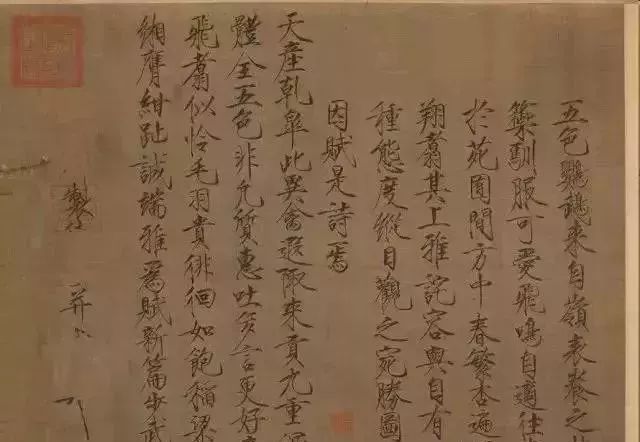 五色鸚鵡來自嶺表養之
籞馴服可愛飛鳴自適往
於苑囿間方中春繁杏遍
翔翥其上雅詫容與自有
種態度縱目觀之宛勝圖
因賦是詩焉
天產乾皐此異禽遐陬來貢九重深
體全五色非凡質惠吐多言更好
飛翥似怜毛羽貴徘徊如飽稻粱
緗膺紺趾誠端雅為賦新篇步武
製
并